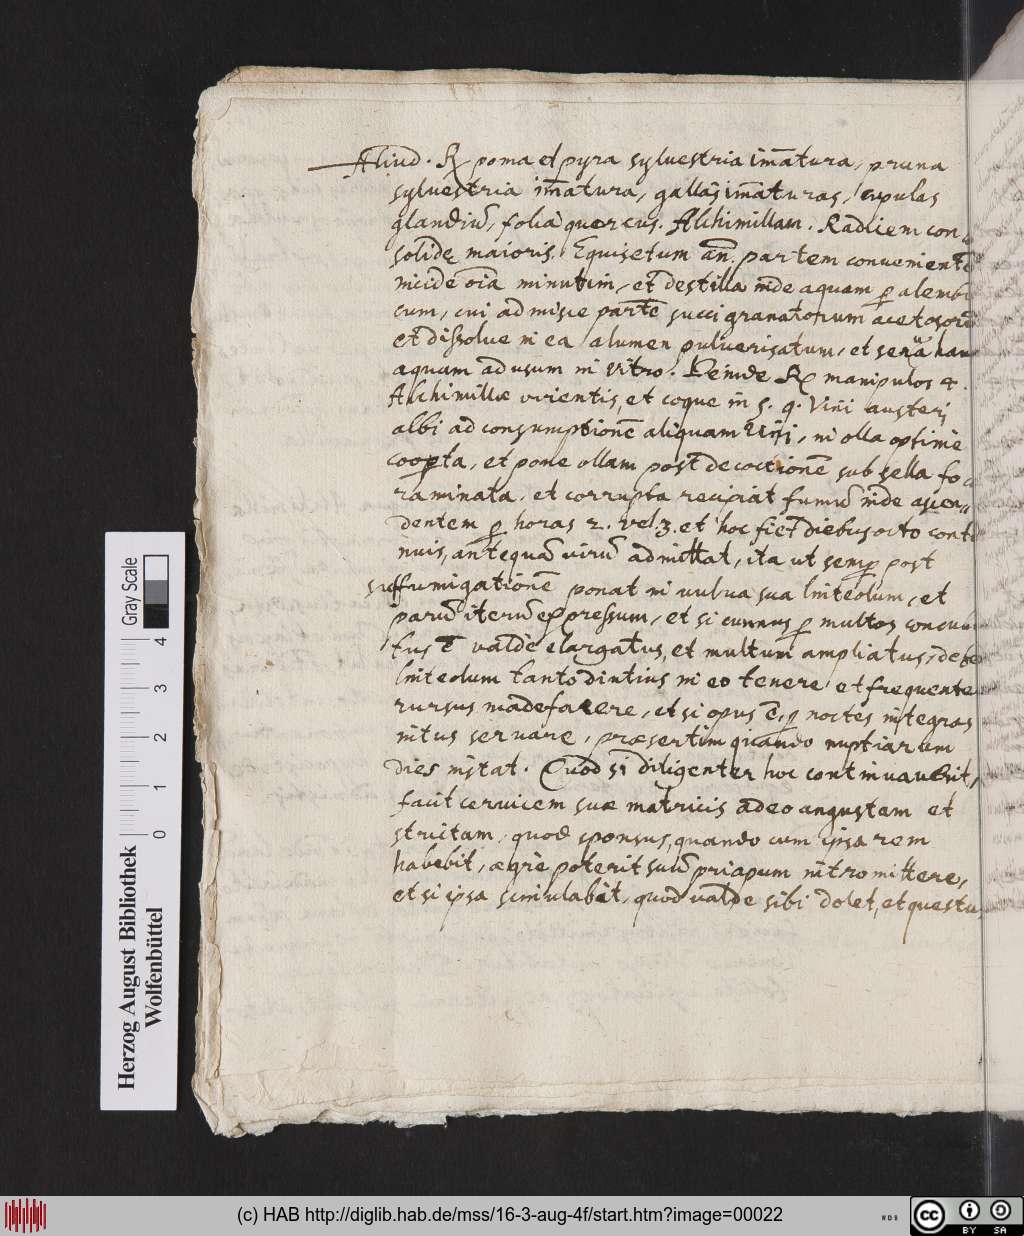 Aliud. ℞ poma et pyra syluestria im̄atura, pruna
syluestria im̄atura, gallas im̄aturas, cupulas
glandiū, folia quercus. Alchimillam. Radicem con„
solidę maioris. Equisetum an̄. partem conuenientē
incide oīa minutim, et destilla inde aquam ꝑ alembi
cum, cui admisce partē succi granatorum acetosorū
et dissolue in ea alumen puluerisatum, et serua hanc
aquam ad usum in vitro. Deinde ℞ manipulos 4.
Alchimillæ virientis, et coque in s. q. Vini austeri
albi ad consumptionē aliquam Vini, in olla optime
coopta, et pone ollam post decoctionē sub sella fo
raminata, et corrupta recipiat fumū inde ascen„
dentem ꝑ horas 2. vel. 3. et hoc fiet diebus octo conti
nuis, antequā virū admittat, ita ut semꝑ post
suffumigationē ponat in vulua sua linteolum, et
parū iterū expressum, et si cunnus ꝑ multos concubi
tus ē valdè elargatus, et multum ampliatus, debet
linteolum tanto diutius in eo tenere et frequenter
rursus madefacere, et si opus ē, ꝑ noctes integras
intus seruare, præsertim quando nuptiarum
dies instat. Quod si diligenter hoc continuauerit,
faciet ceruicem suæ matricis adeo angustam et
strictam, quod sponsus, quando cum ipsa rem
habebit, ægrè poterit suū priapum intromittere,
et si ipsa simulabit, quod valde sibi dolet, et questu
Herzog August Bibliothek
Wolfenbüttel
Gray Scale
0 1 2 3 4
(c) HAB http://diglib.hab.de/mss/16-3-aug-4f/start.htm?image=00022
WDB
cc BY SA